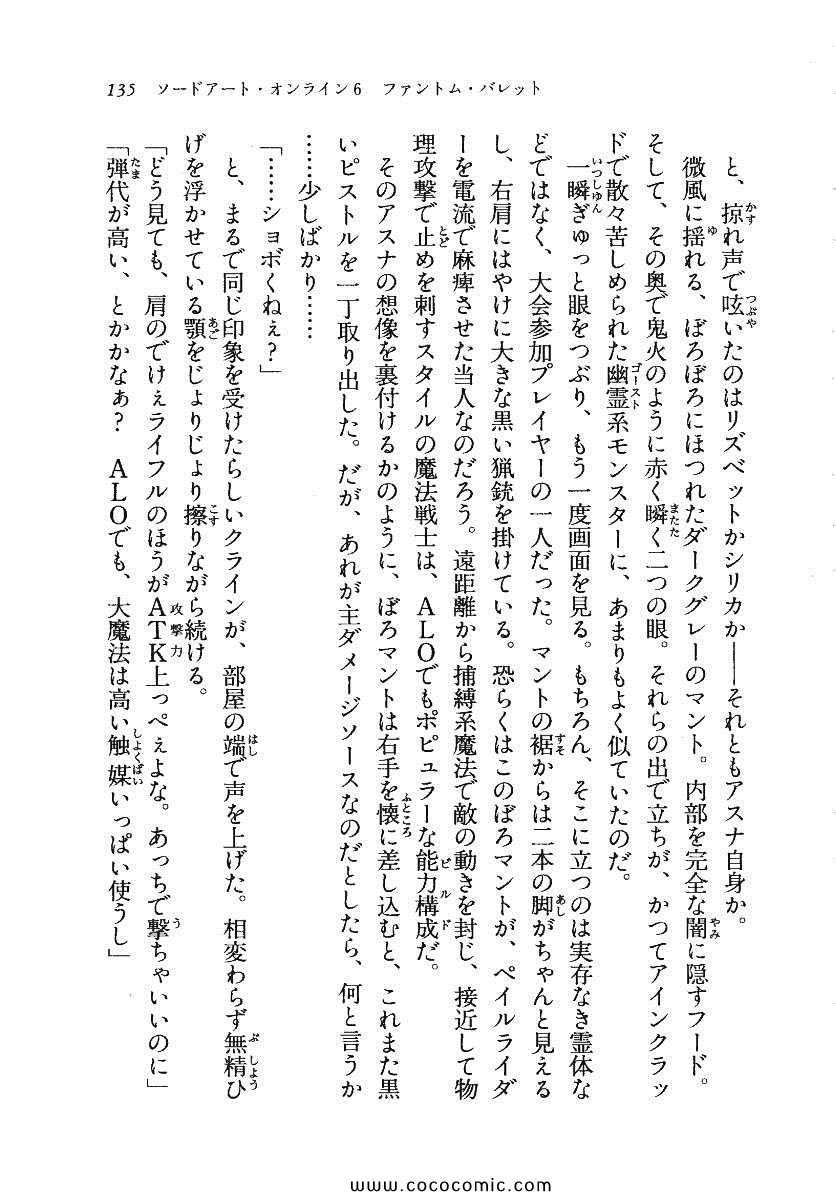 135　ソードアート・オンライン6　ファントム・バレット
と、掠れ声で呟いたのはリズベットかシリカか――それともアスナ自身か。
微風に揺れる、ぼろぼろにほつれたダークグレーのマント。内部を完全な闇に隠すフード。
そして、その奥で鬼火のように赤く瞬く二つの眼。それらの出で立ちが、かつてアインクラッ
ドで散々苦しめられた幽霊系モンスターに、あまりもよく似ていたのだ。
一瞬ぎゅっと眼をつぶり、もう一度画面を見る。もちろん、そこに立つのは実存なき霊体な
どではなく、大会参加プレイヤーの一人だった。マントの裾からは二本の脚がちゃんと見える
し、右肩にはやけに大きな黒い猟銃を掛けている。恐らくはこのぼろマントが、ペイルライダ
ーを電流で麻痺させた当人なのだろう。遠距離から捕縛系魔法で敵の動きを封じ、接近して物
理攻撃で止めを刺すスタイルの魔法戦士は、ALOでもポピュラーな能力構成だ。
そのアスナの想像を裏付けるかのように、ぼろマントは右手を懐に差し込むと、これまた黒
いピストルを一丁取り出した。だが、あれが主ダメージソースなのだとしたら、何と言うか
……少しばかり……
「……ショボくねぇ？」
と、まるで同じ印象を受けたらしいクラインが、部屋の端で声を上げた。相変わらず無精ひ
げを浮かせている顎をじょりじょり擦りながら続ける。
「どう見ても、肩のでけぇライフルのほうがATK上っぺぇよな。あっちで撃ちゃいいのに」
「弾代が高い、とかかなぁ？　ALOでも、大魔法は高い触媒いっぱい使うし」
www.cococomic.com